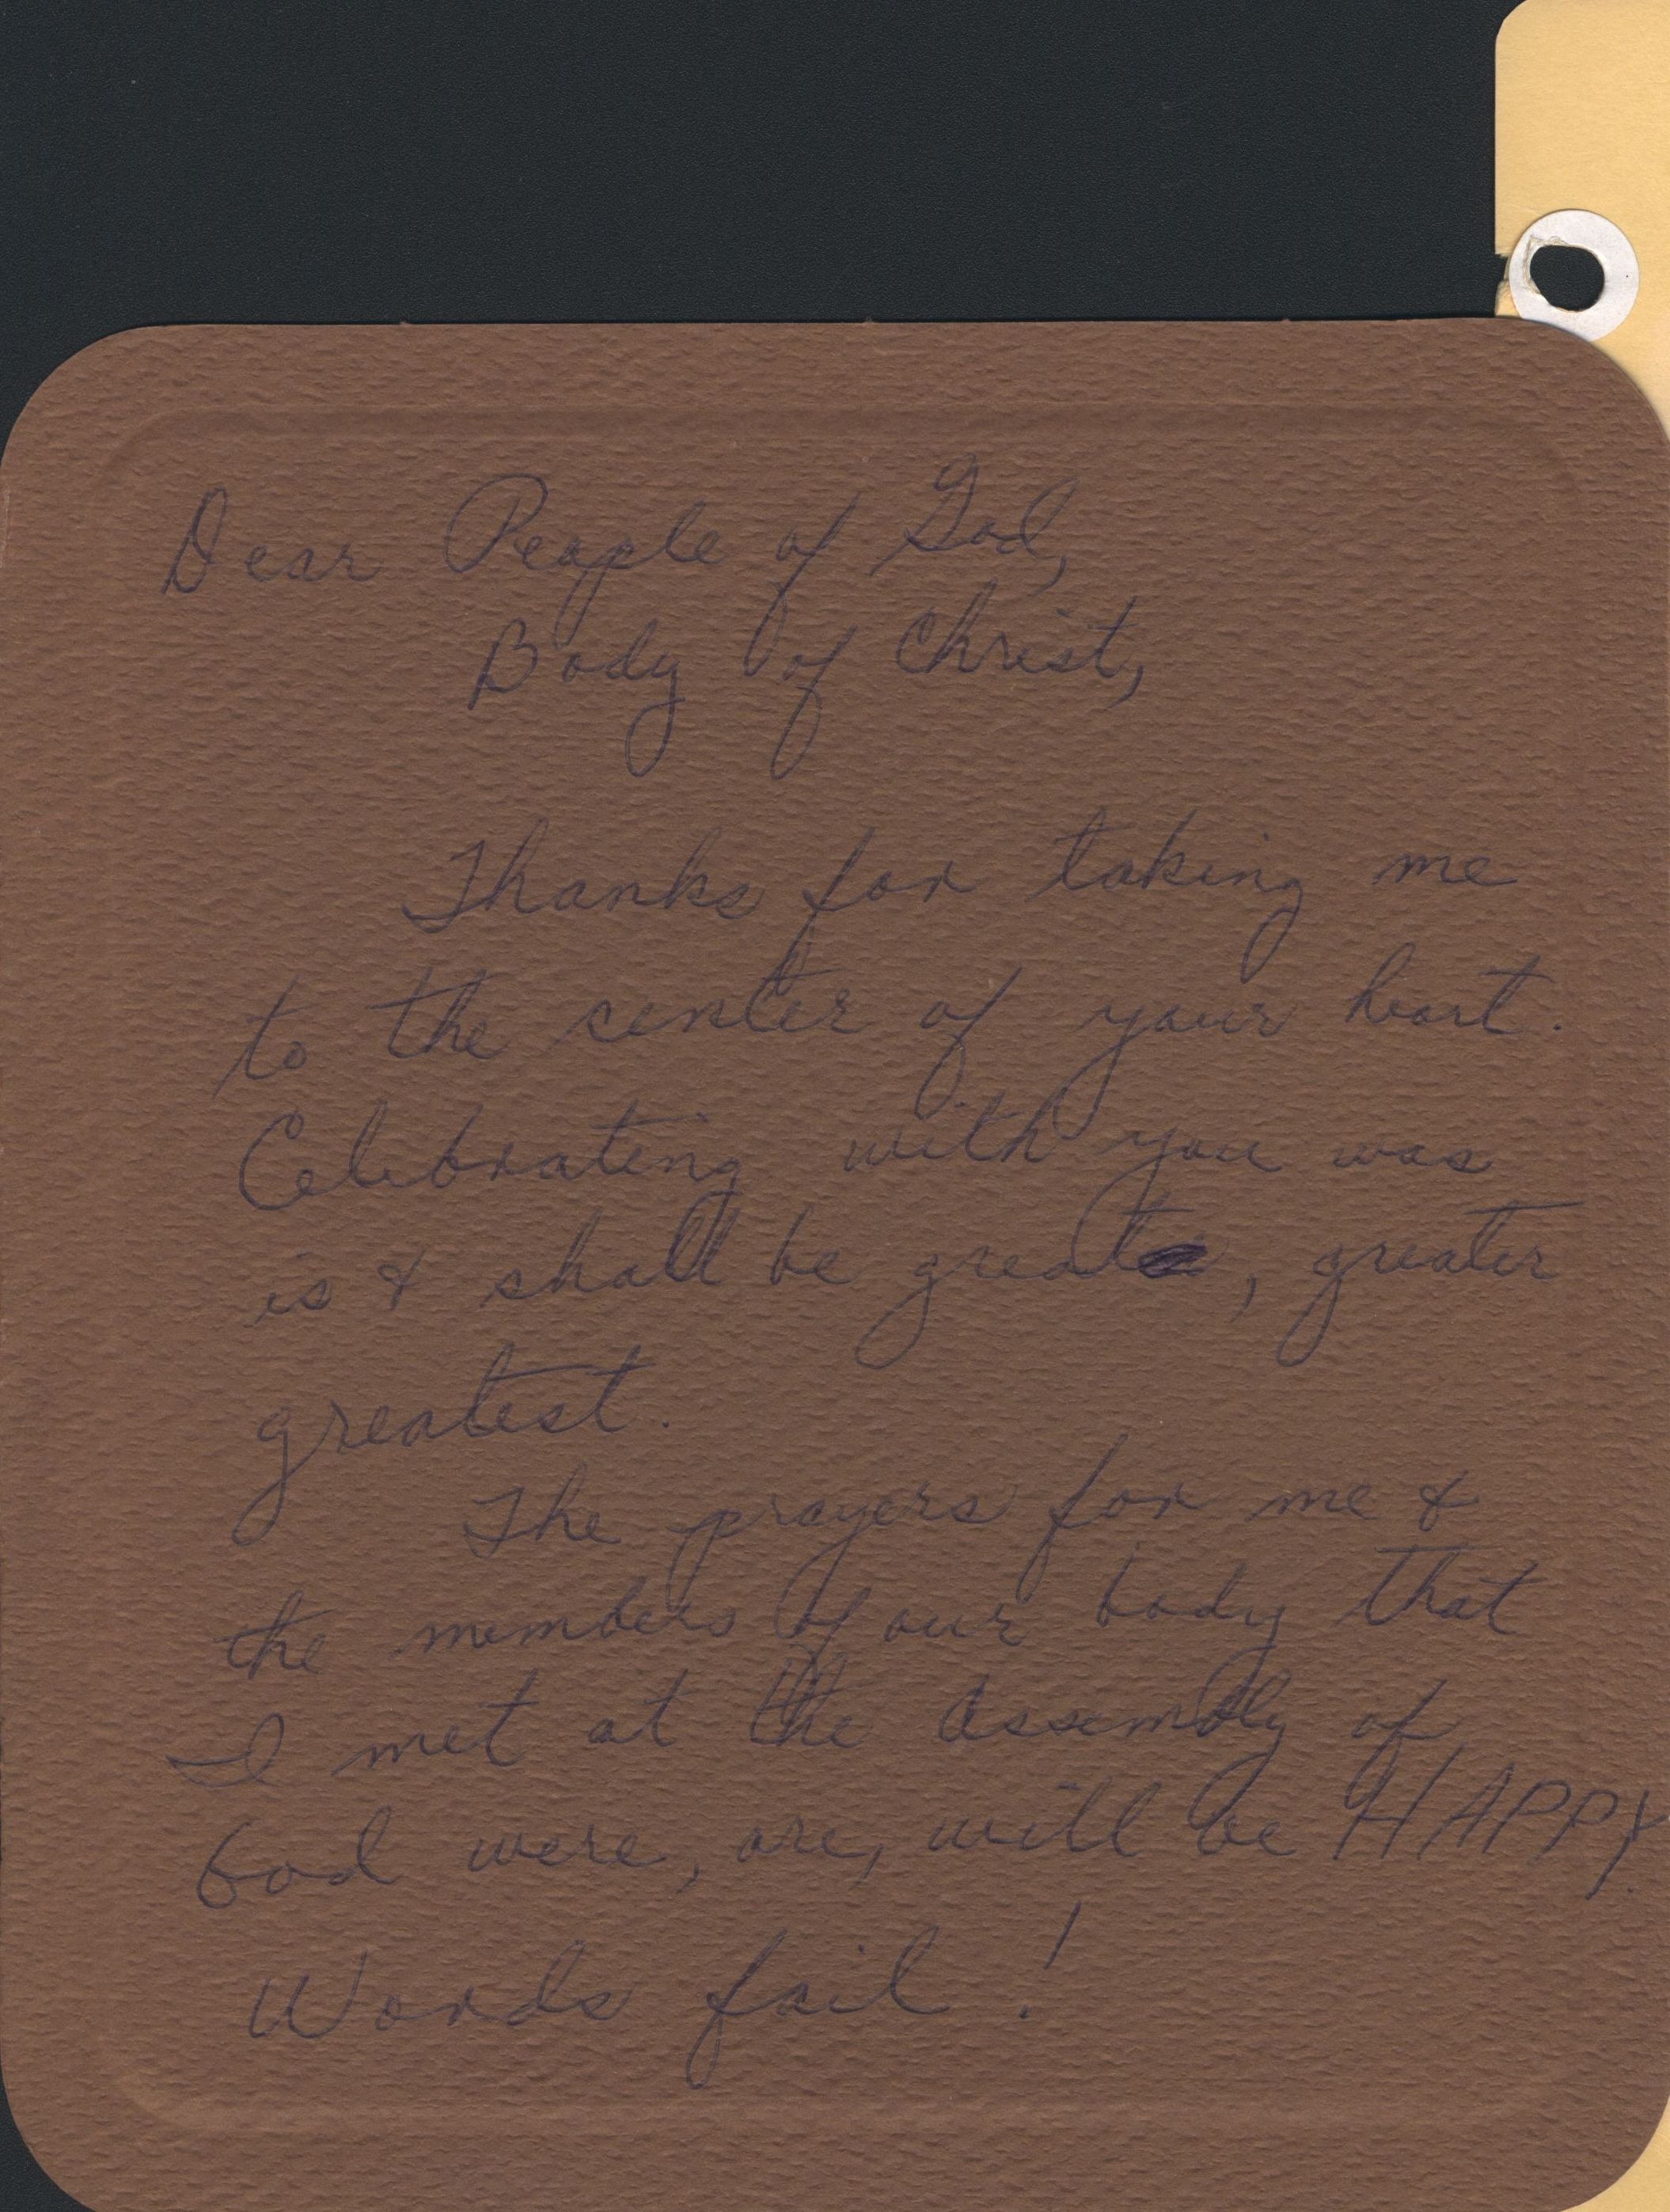 Dear People of God,
Body of Christ,
Thanks for taking me
to the center of your heart.
Celebrating with you was
is & shall be great, greater
greatest.
The prayers for me &
the members of our body that
I met at the Assembly of
God were, are, will be HAPPY.
Words fail!